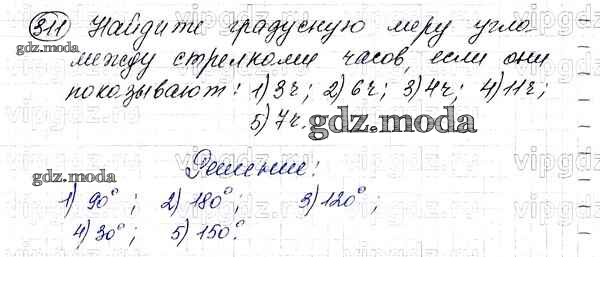 311 Найдите градусную меру угла
между стрелками часов, если они
показывают: 1) 3ч; 2) 6ч; 3) 4ч; 4) 11ч;
5) 7ч.
gdz.moda
gdz.moda
Решение:
gdz.moda
1) 90°; 2) 180°; 3) 120°;
4) 30°; 5) 150°.